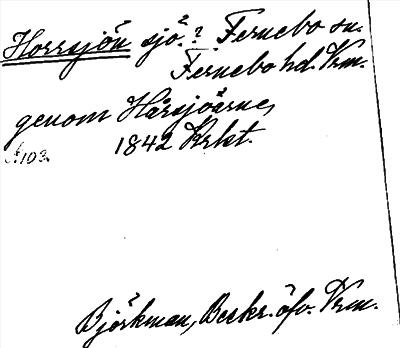 Horrsjön sjö? Fernebo sn.
Fernebo hd. Vrm.
genom Hårsjöarne,
1842 Krkt.
A:103.
Björkman, Beskr. öfv. Vrm.